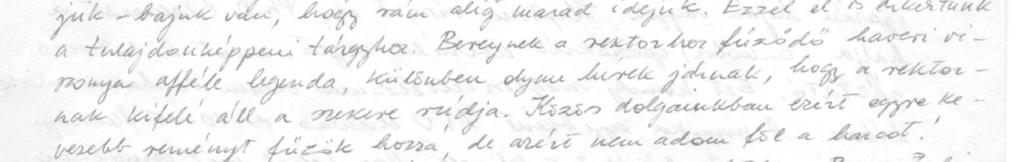 juk-bajuk van, hogy rám alig marad idejük. Ezzel el is érkeztünk
a tulajdonképpeni tárgyhoz. Berczynek a rektorhoz fűződő haveri vi-
szonya afféle legenda, különben olyan hírek járnak, hogy a rektor-
nak kifelé áll a szekere rúdja. Közös dolgainkban ezért egyre ke-
vesebb reményt fűzök hozzá, de azért nem adom föl a harcot!